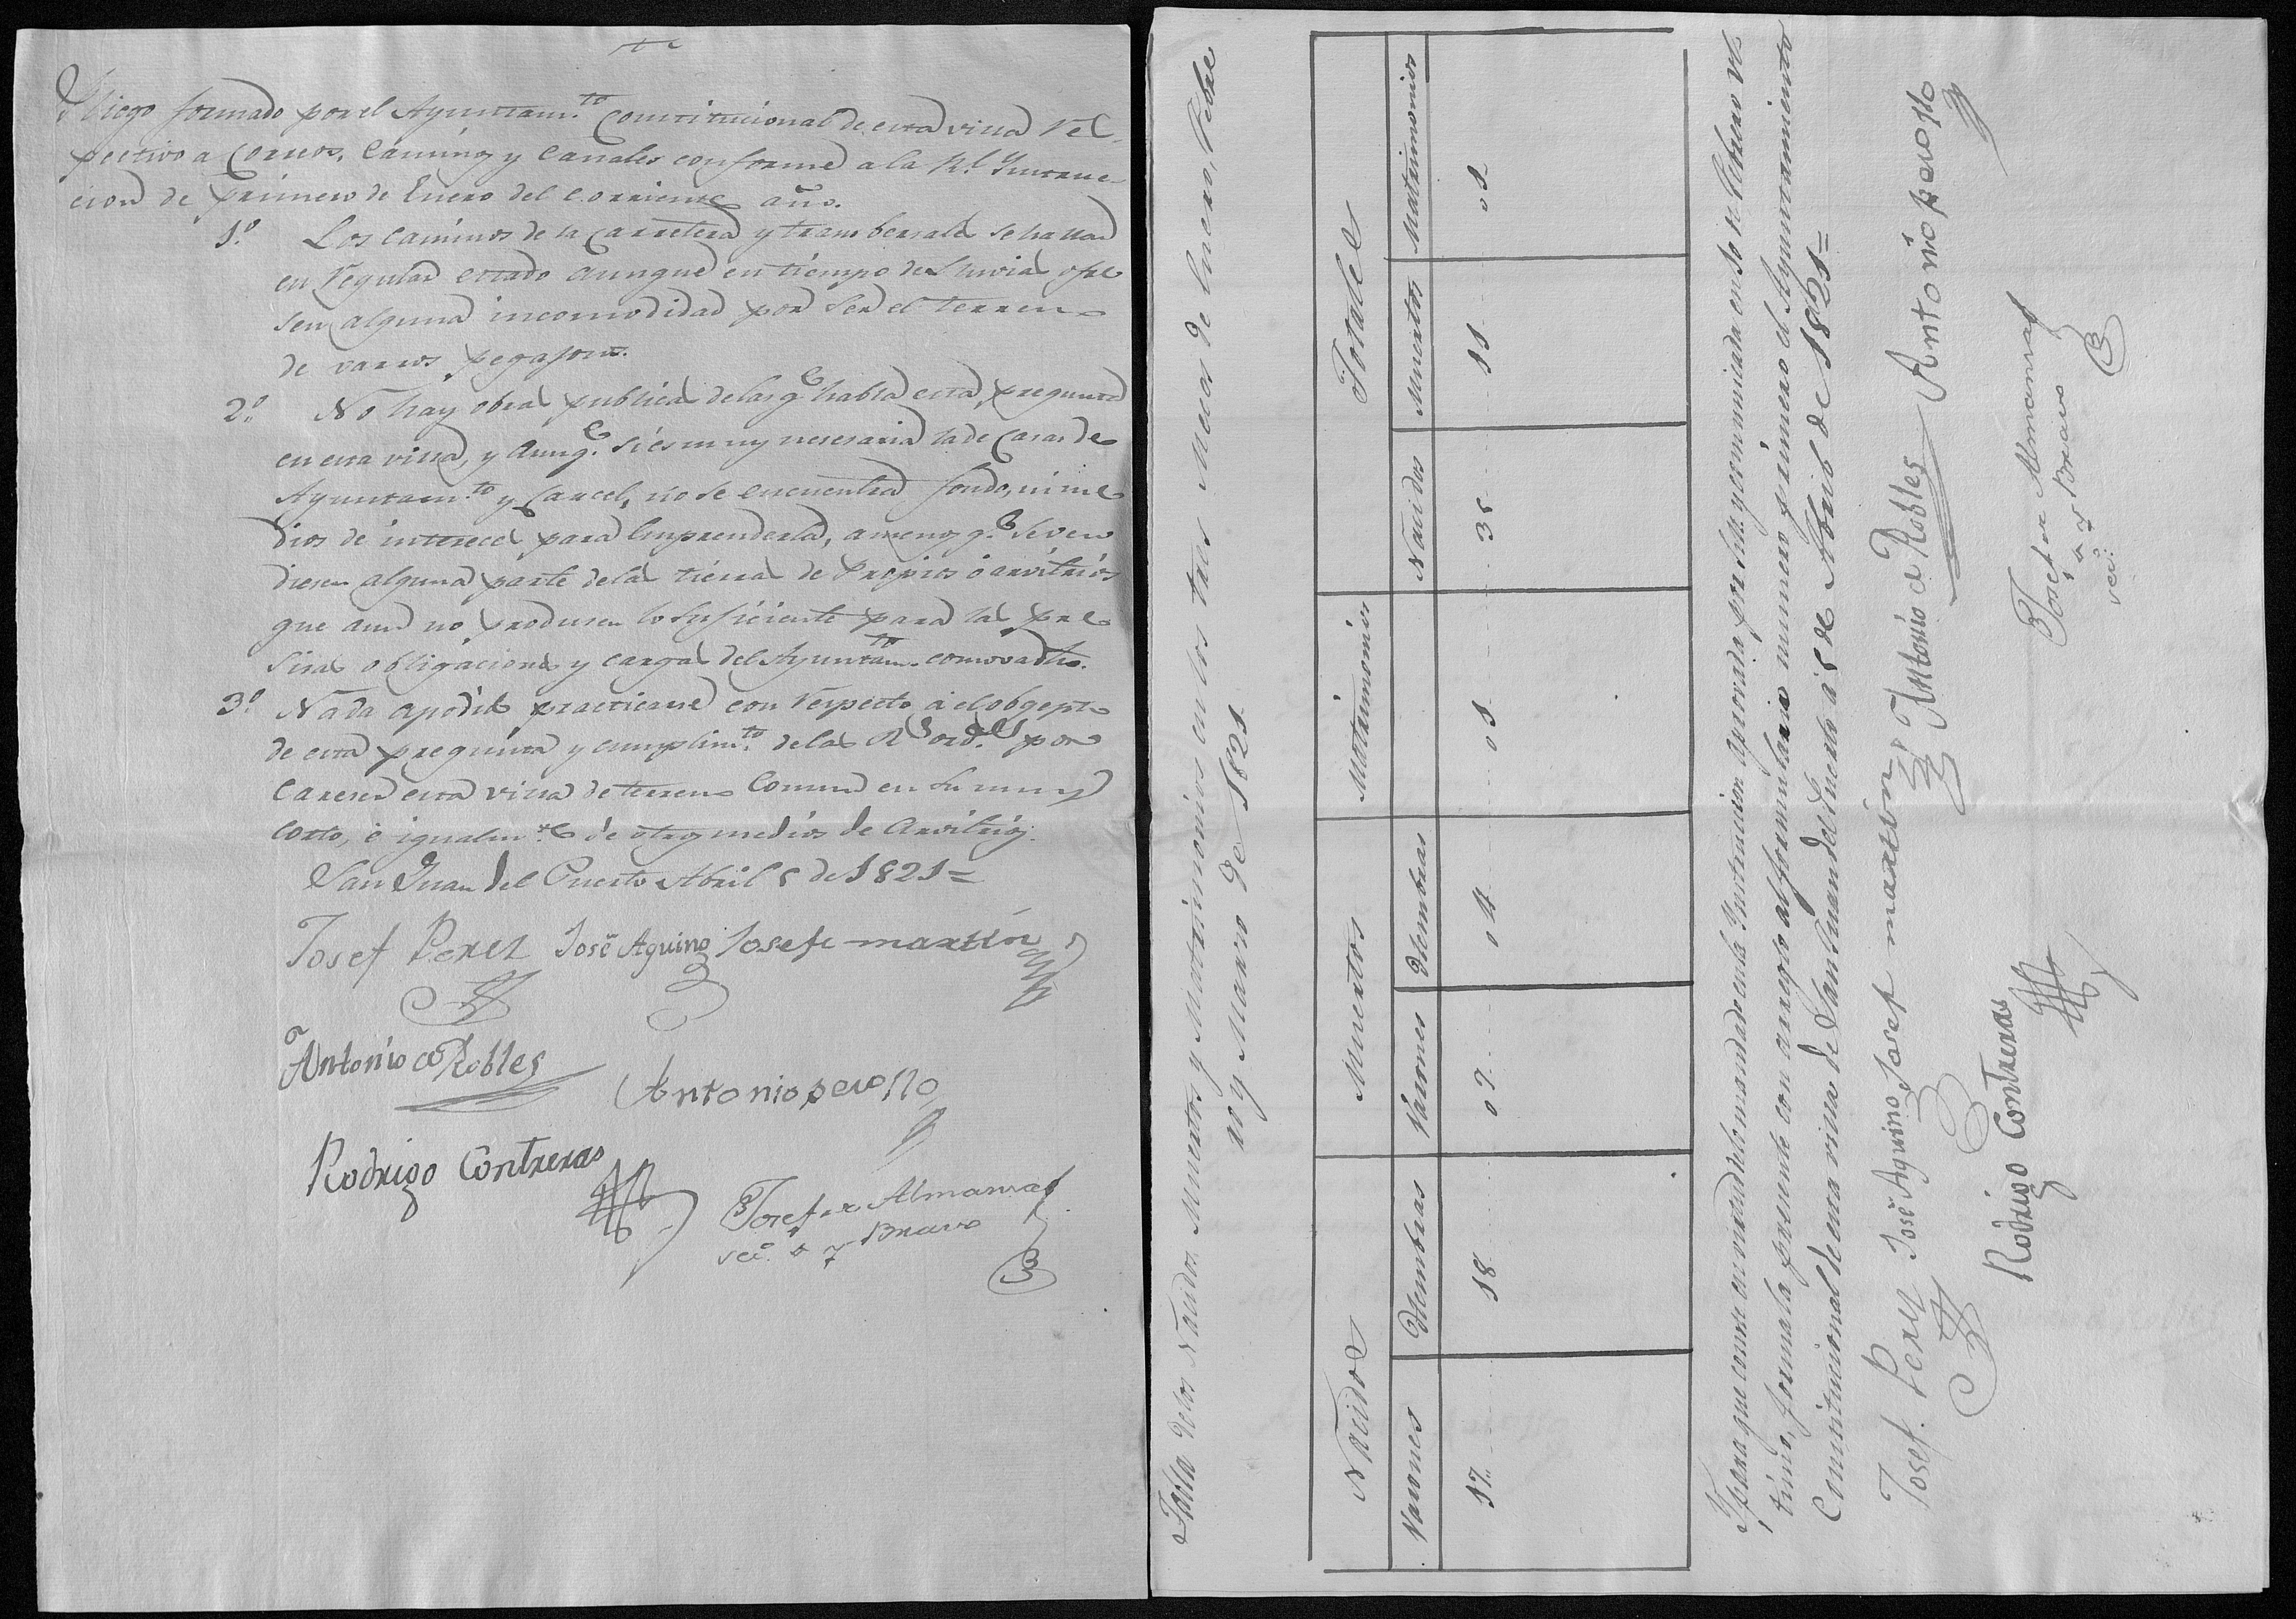 Pliego formado por el Ayuntam.to Constitucional de esta villa res-
pectivo a Correos, Caminos y Canales conforme a la Rl. Instruc-
cion de primero de Enero del corriente año.
1.º Los caminos de la Carretera y trambersales se hallan
en regular estado aunque en tiempo de lluvias ofre
sen alguna incomodidad por ser el terreno
de varros pegajosos.
2.º No hay obras publicas de las q.e habla esta pregunta
en esta villa, y aunq.e si es muy nesesaria la de Casas de
Ayuntam.to y Carcel, no se encuentra fondo, ni me
dios de intereces para emprenderla, a menos q.e se ven
diesen alguna parte de las tierras de Propios ó arvitrios
que aun no produsen lo suficiente para las pre
sisas obligaciones y cargas del Ayuntam.to como va dho.
3.º Nada a podido practicarse con respecto á el obgepto
de esta pregunta y cumplim.to de las Rs ords. por
careser esta villa de terreno Comun en su muy
corto, é igualm.te de otros medios de Arvitrios.
San Juan del Puerto Abril 5 de 1821=
Josef Perez José Aquino Josefe martin
Antonio de Robles
Antonio perollo
Rodrigo Contreras
Josef Almansa
Bravo
sec.º
Tabla de los Nacidos Muertos y Matrimonios en los tres Meses de Enero, Febre
ro y Marzo de 1821
Nacidos Muertos Matrimonios Totales
Varones Hembras Varones Hembras Nacidos Muertos Matrimonios
17 18 07 04 01 35 11 01
Y para que conste en virtud de lo mandado en la Instruccion aprovada por S.M. y comunicada en 10 de Febrero ul
timo, forma la presente con arreglo al formulario numero primero el Ayuntamiento
Constitucional de esta villa de San Juan del Puerto á 5 de Abril de 1821=
Josef Perez José Aquino Josef martin Antonio de Robles Antonio perollo
Rodrigo Contreras
Josef Almansa
y Bravo
sec.º